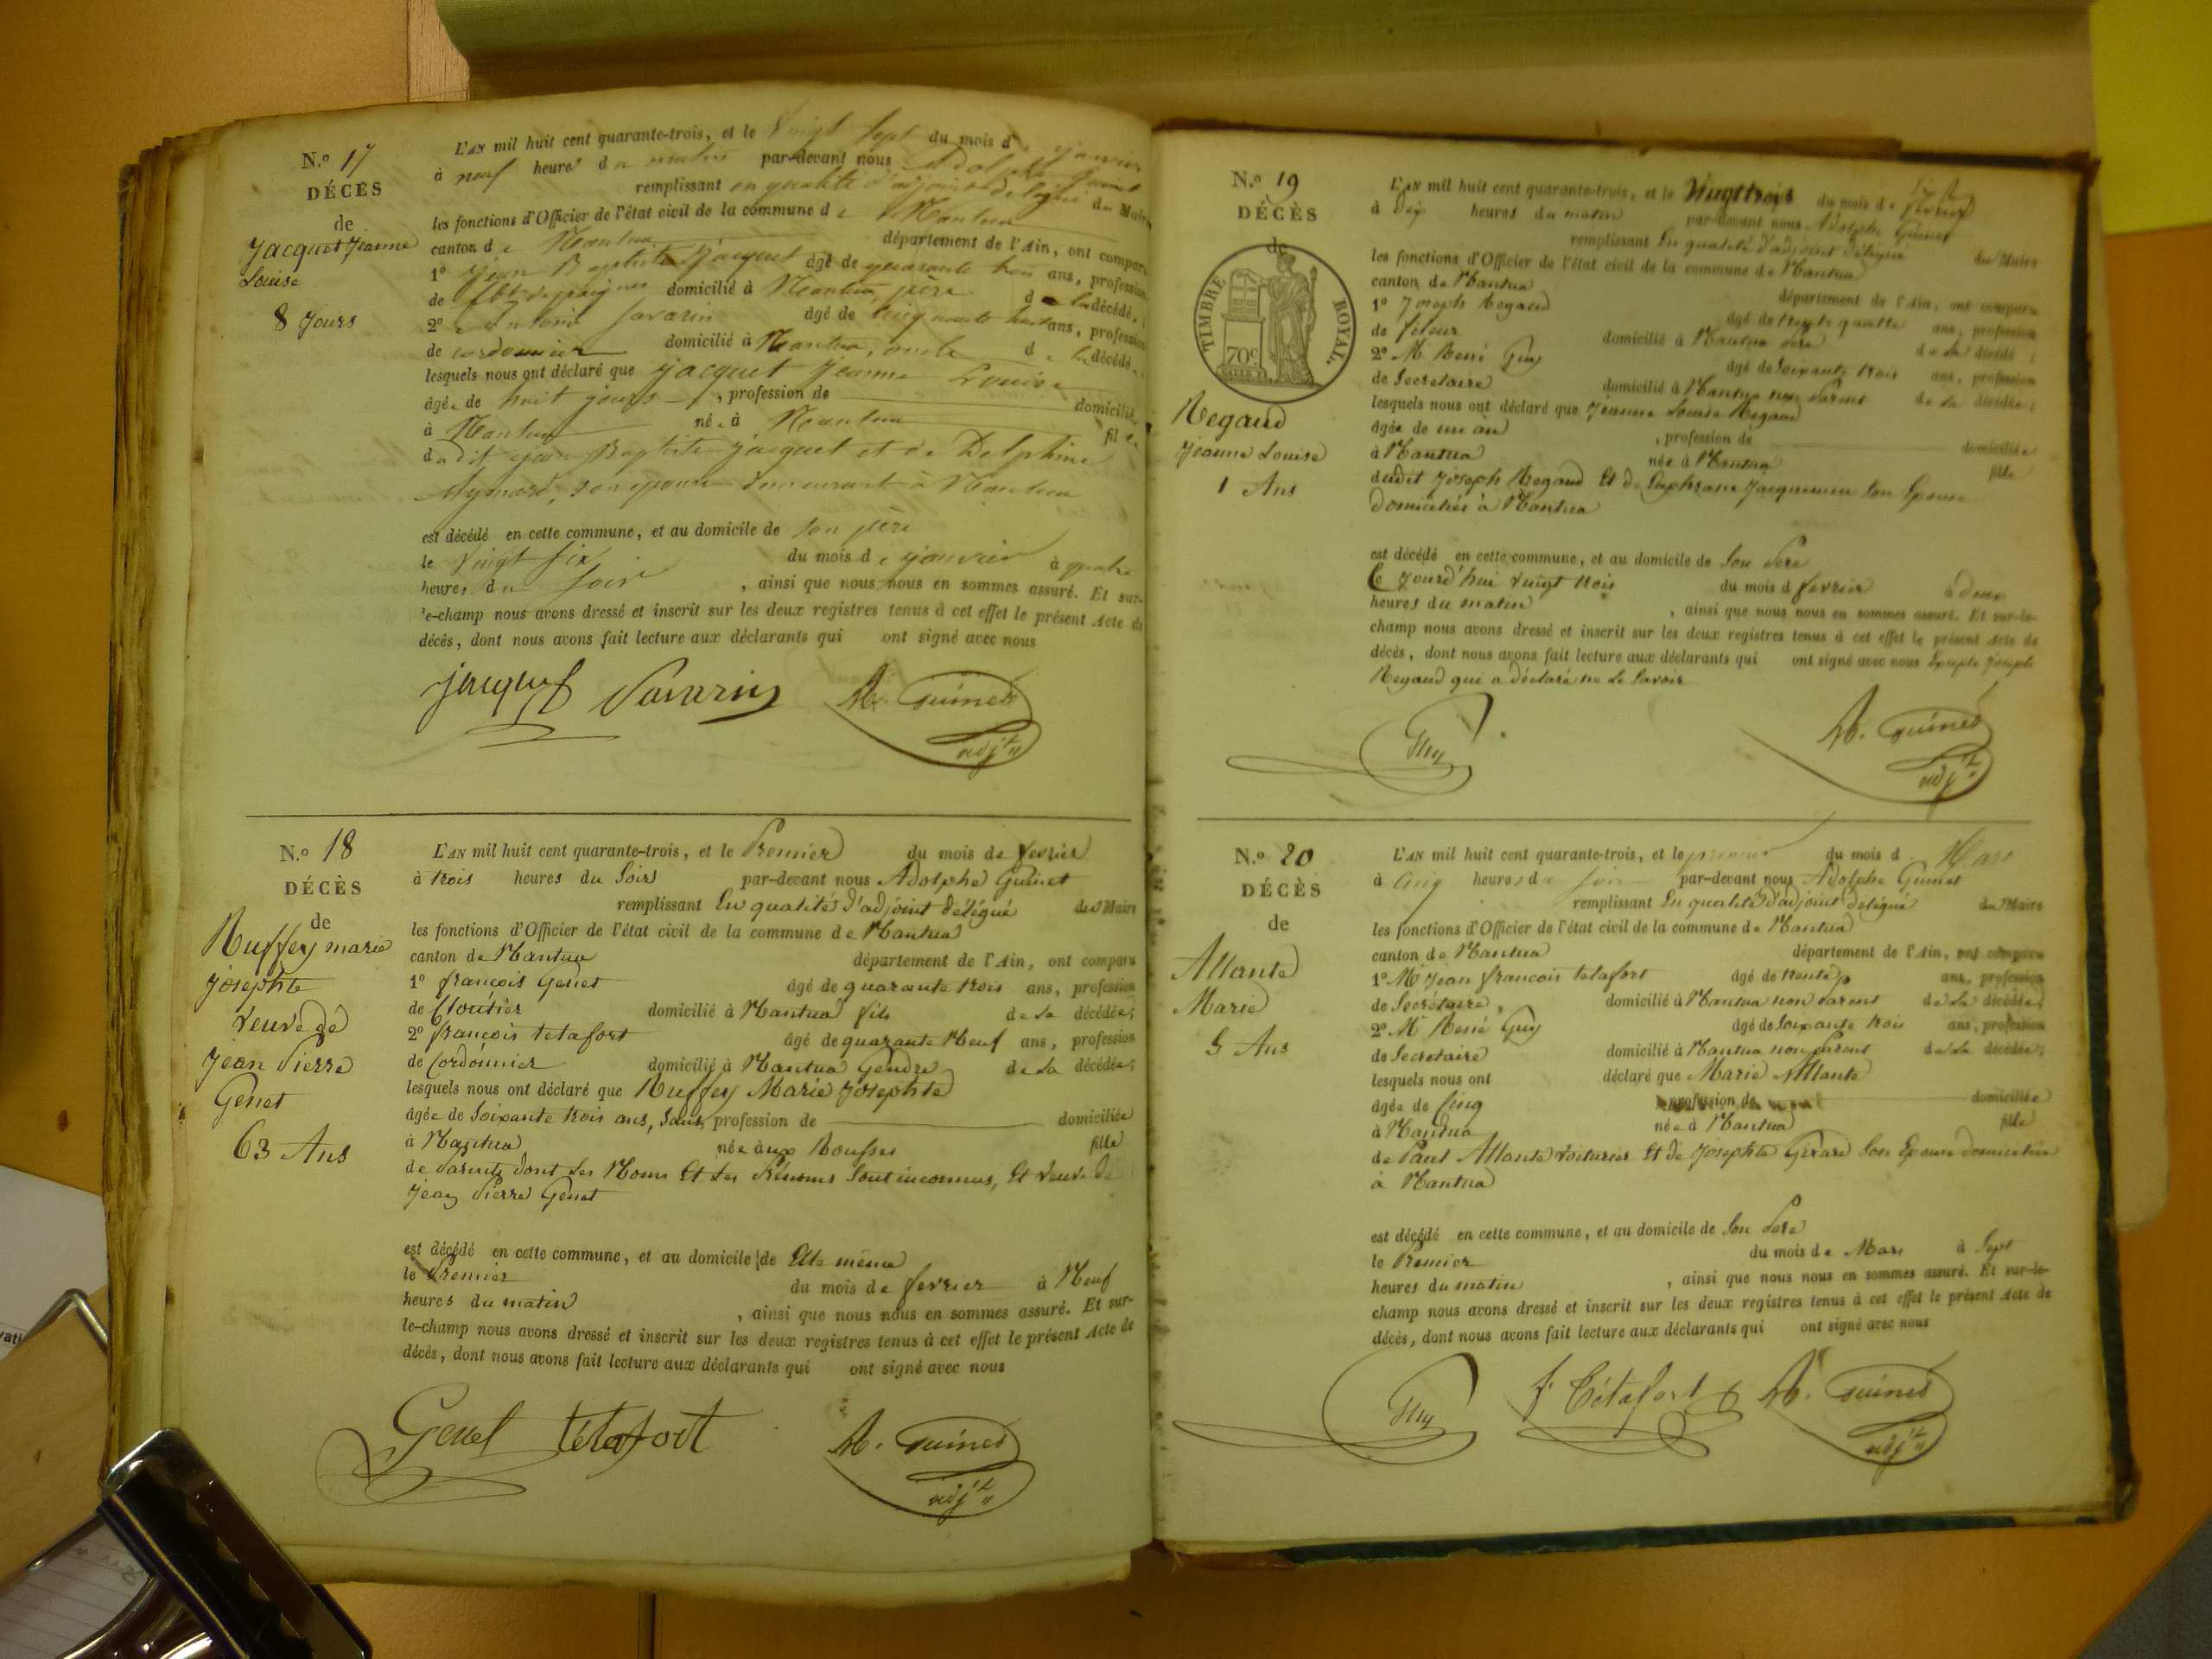 N.º 17
DÉCÈS
de
Jacquet Jeanne
Louise
8 Jours
L'AN mil huit cent quarante-trois, et le Vingt Sept du mois de janvier
à neuf heures du matin par-devant nous Adolphe Guinet
remplissant en qualité d'adjoint délégué du Maire
les fonctions d'Officier de l'état civil de la commune de Nantua
canton de Nantua département de l'Ain, ont comparu
1º Jean Baptiste Jacquet âgé de quarante trois ans, profession
de fbt de peignes domicilié à Nantua, père de la décédée,
2º Antoine Savarin âgé de cinquante huit ans, profession
de cordonnier domicilié à Nantua, oncle de la décédée,
lesquels nous ont déclaré que Jacquet Jeanne Louise
âgée de huit jours, profession de domiciliée
à Nantua née à Nantua fille
dudit Jean Baptiste Jacquet et de Delphine
Aymard, son épouse demeurant à Nantua
est décédé en cette commune, et au domicile de son père
le Vingt Six du mois de janvier à quatre
heures du soir, ainsi que nous nous en sommes assuré. Et sur-
le-champ nous avons dressé et inscrit sur les deux registres tenus à cet effet le présent Acte de
décès, dont nous avons fait lecture aux déclarants qui ont signé avec nous
Jacquet Savarin A. Guinet
adj.t
N.º 18
DÉCÈS
de
Ruffey marie
Josephte
Veuve de
Jean Pierre
Genet
63 Ans
L'AN mil huit cent quarante-trois, et le Premier du mois de fevrier
à trois heures du Soir par-devant nous Adolphe Guinet
remplissant En qualité d'adjoint délégué du Maire
les fonctions d'Officier de l'état civil de la commune de Nantua
canton de Nantua département de l'Ain, ont comparu
1º françois Genet âgé de quarante trois ans, profession
de Cloutier domicilié à Nantua fils de la décédée;
2º françois tetafort âgé de quarante Neuf ans, profession
de Cordonnier domicilié à Nantua Gendre de la décédée;
lesquels nous ont déclaré que Ruffey Marie Josephte
âgée de Soixante trois ans, Sans, profession de domiciliée
à Nantua née aux Rousses fille
de Parents dont les Noms Et les Prénoms Sont inconnus, Et Veuve de
Jean Pierre Genet
est décédé en cette commune, et au domicile de Elle même
le Premier du mois de fevrier à Neuf
heures du matin, ainsi que nous nous en sommes assuré. Et sur-
le-champ nous avons dressé et inscrit sur les deux registres tenus à cet effet le présent Acte de
décès, dont nous avons fait lecture aux déclarants qui ont signé avec nous
Genet tétafort A. Guinet
adj.t
N.º 19
DÉCÈS
de
TIMBRE ROYAL.
70c
Regaud
Jeanne Louise
1 Ans
L'AN mil huit cent quarante-trois, et le Vingt trois du mois de fevrier
à Dix heures du matin par-devant nous Adolphe Guinet
remplissant En qualité d'adjoint délégué du Maire
les fonctions d'Officier de l'état civil de la commune de Nantua
canton de Nantua département de l'Ain, ont comparu
1º Joseph Regaud âgé de trente quatre ans, profession
de fileur domicilié à Nantua Père de la décédé;
2º M. René Guy âgé de Soixante trois ans, profession
de Secretaire domicilié à Nantua non Parent de la décédée;
lesquels nous ont déclaré que Jeanne Louise Regaud
âgée de un an, profession de domiciliée
à Nantua née à Nantua fille
dudit Joseph Regaud Et de Euphrasie Jacquemin Son Epouse
domiciliés à Nantua
est décédé en cette commune, et au domicile de Son Père
le Jourd'hui vingt trois du mois d fevrier à deux
heures du matin, ainsi que nous nous en sommes assuré. Et sur-le-
champ nous avons dressé et inscrit sur les deux registres tenus à cet effet le présent Acte de
décès, dont nous avons fait lecture aux déclarants qui ont signé avec nous Excepté Joseph
Regaud qui a déclaré ne le Savoir
Guy A. Guinet
adj.t
N.º 20
DÉCÈS
de
Allante
Marie
5 Ans
L'AN mil huit cent quarante-trois, et le premier du mois d Mars
à Cinq heures du soir par-devant nous Adolphe Guinet
remplissant En qualité d'adjoint délégué du Maire
les fonctions d'Officier de l'état civil de la commune de Nantua
canton de Nantua département de l'Ain, ont comparu
1º M. Jean francois tetafort âgé de trente ans, profession
de Secrétaire, domicilié à Nantua non Parent de la décédée;
2º M. René Guy âgé de Soixante trois ans, profession
de Secretaire domicilié à Nantua non Parent de la décédée;
lesquels nous ont déclaré que Marie Allante
âgée de Cinq profession de domiciliée
à Nantua née à Nantua fille
de Paul Allante voiturier Et de Josephte Girard Son Epouse domiciliés
à Nantua
est décédé en cette commune, et au domicile de Son Père
le Premier du mois de Mars à Sept
heures du matin, ainsi que nous nous en sommes assuré. Et sur-le-
champ nous avons dressé et inscrit sur les deux registres tenus à cet effet le présent Acte de
décès, dont nous avons fait lecture aux déclarants qui ont signé avec nous
Guy f. Tétafort A. Guinet
adj.t